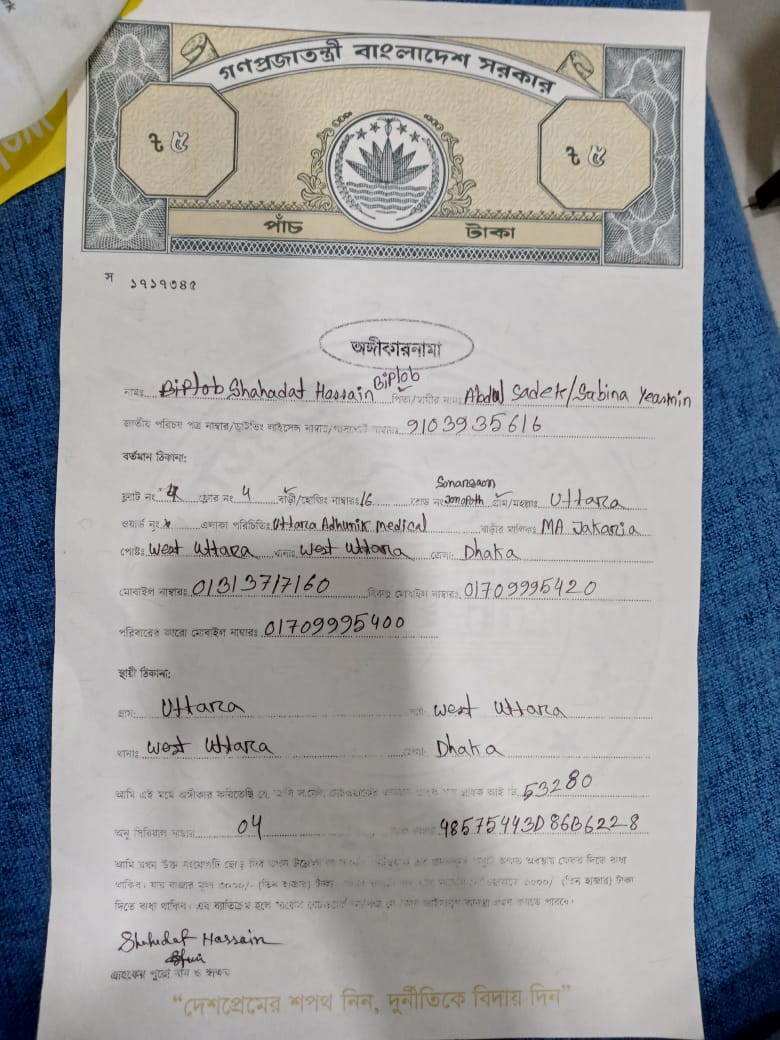 গণপ্রজাতন্ত্রী বাংলাদেশ সরকার
৳ ৫ ৳ ৫
পাঁচ টাকা
স ১৭১৭৩৪৫
অঙ্গীকারনামা
নামঃ Biplob Shahadat Hossain Biplob পিতা/স্বামীর নামঃ Abdul Sadek/Sabina Yeasmin
জাতীয় পরিচয় পত্র নাম্বার/ড্রাইভিং লাইসেন্স নাম্বার/পাসপোর্ট নাম্বারঃ 9103935616
বর্তমান ঠিকানা:
ফ্ল্যাট নং 4 ফ্লোর নং 4 বাড়ী/হোল্ডিং নাম্বারঃ 16 রোড নং Sonargaon Jonopoth গ্রাম/মহল্লাঃ Uttara
ওয়ার্ড নং এলাকা পরিচিতিঃ Uttara Adhunik medical বাড়ীর মালিকঃ MA Jakaria
পোষ্টঃ West Uttara থানাঃ West Uttara জেলা: Dhaka
মোবাইল নাম্বারঃ 01313717160 বিকল্প মোবাইল নাম্বারঃ 01709995420
পরিবারের কারো মোবাইল নাম্বারঃ 01709995400
স্থায়ী ঠিকানা:
গ্রাম: Uttara West Uttara
থানাঃ West Uttara জেলা: Dhaka
আমি এই মর্মে অঙ্গীকার করিতেছি যে, আইডি 53280
অনু সিরিয়াল নাম্বার 04 48575443D86B6228
আমি যখন উক্ত সংযোগটি অবস্থায় ফেরত দিতে বাধ্য
থাকিব। যার বাজার মূল্য ৩০০০/- (তিন হাজার) টাকা ৩০০০/ (তিন হাজার) টাকা
দিতে বাধ্য থাকিব। এর ব্যতিক্রম হলে করতে পারবে।
Shahadat Hossain
গ্রাহকের পুরো নাম ও স্বাক্ষর
“দেশপ্রেমের শপথ নিন, দুর্নীতিকে বিদায় দিন”